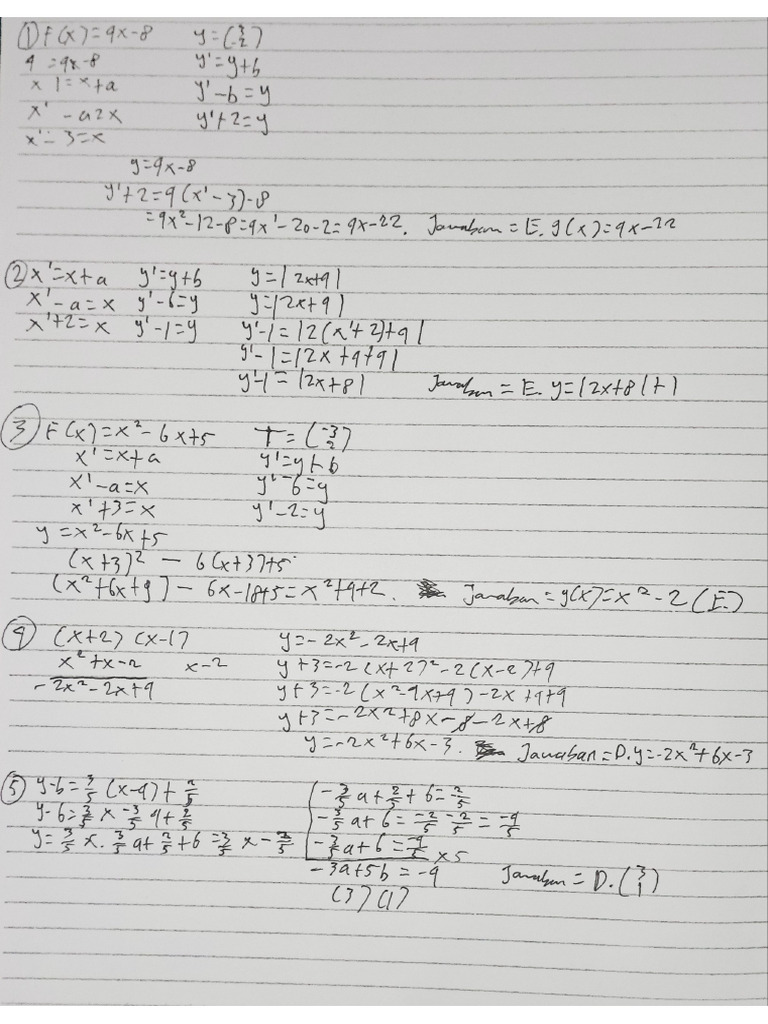 ① F(x) = 9x-8 y = (3 -2)
9 = 9x-8 y' = y+b
x 1 = x+a y'-b = y
x' - a2x y'+2 = y
x' - 3 = x
y = 9x-8
y'+2 = 9(x'-3)-8
= 9x²-12-8 = 9x'-20-2 = 9x-22. Jawaban = E. g(x) = 9x-22
② x' = x+a y' = y+b y = |2x+9|
x'-a = x y'-6 = y y = |2x+9|
x'+2 = x y'-1 = y y'-1 = |2(x'+2)+9|
y'-1 = |2x+9+9|
y'-1 = |2x+8| Jawaban = E. y = |2x+8|+1
③ F(x) = x²-6x+5 T = (-3 2)
x' = x+a y' = y+b
x'-a = x y'-6 = y
x'+3 = x y'-2 = y
y = x²-6x+5
(x+3)² - 6(x+3)+5
(x²+6x+9) - 6x-18+5 = x²+9+2. Jawaban = g(x) = x²-2 (E.)
④ (x+2) (x-1) y = -2x²-2x+9
x²+x-2 x-2 y+3 = -2(x+2)²-2(x-2)+9
-2x²-2x+9 y+3 = -2(x²-9x+9)-2x+9+9
y+3 = -2x²+8x-8-2x+8
y = -2x²+6x-3. Jawaban = D. y = -2x²+6x-3
⑤ y-b = 3/5 (x-a) + 2/5 -3/5 a + 2/5 + 6 = -2/5
y-6 = 3/5 x -3/5 a + 2/5 -3/5 a + 6 = -2/5 - 2/5 = -9/5
y = 3/5 x . 3/5 a + 2/5 + 6 = 3/5 x - 2/5 -3/5 a + 6 = -9/5 x5
-3a+5b = -9 Jawaban = D. (3 1)
(3) (1)